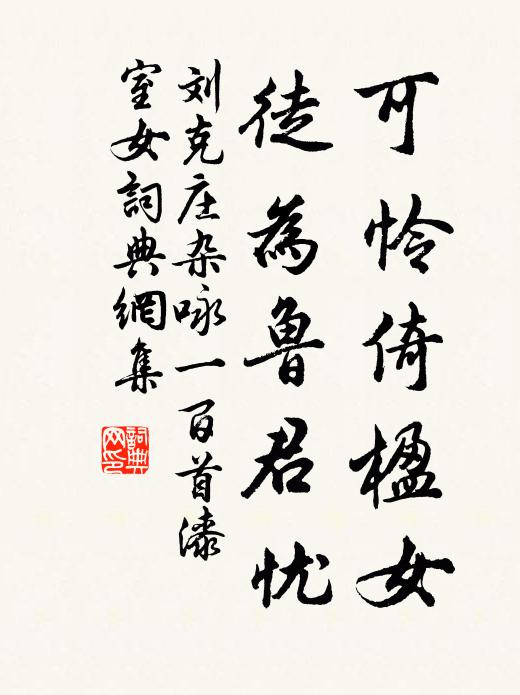 可怜倚楹女
徒為魯君忧
刘克庄杂咏一百首漆
室女詞典網集
詞典
网印